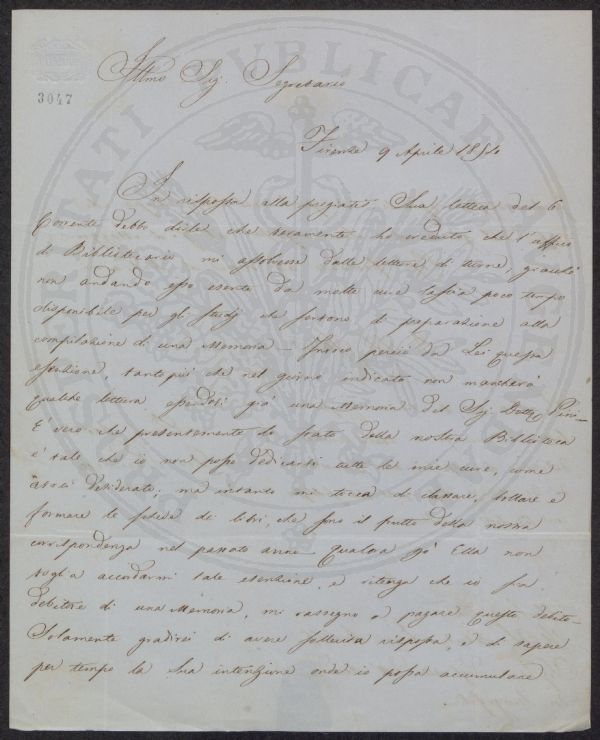 3047
Illmo Sig. Segretario
Firenze 9 Aprile 1854
In risposta alla pregiata Sua lettera del 6
Corrente debbo dirle che veramente ho creduto che l'uffizio
di Bibliotecario mi assolvesse dalle letture di turno, giacchè
non andando esso esente da molte cure lascia poco tempo
disponibile per gli studj che servono di preparazione alla
compilazione di una Memoria – Invoco perciò da Lei questa
esenzione, tantopiù che nel giorno indicato non mancherà
qualche lettura essendovi già una Memoria del Sig. Dottor
È vero che presentemente lo stato della nostra Biblioteca
è tale che io non posso dedicarvi tutte le mie cure, come
avrei desiderato; ma intanto mi tocca di classare, bollare e
formare le schede dei libri, che sono il frutto della nostra
corrispondenza nel passato anno – Qualora poi Ella non
voglia accordarmi tale esenzione, e ritenga che io sia
debitore di una Memoria, mi rassegno a pagare questo debito –
Solamente gradirei di avere sollecita risposta, e di sapere
per tempo la Sua intenzione onde io possa accumulare